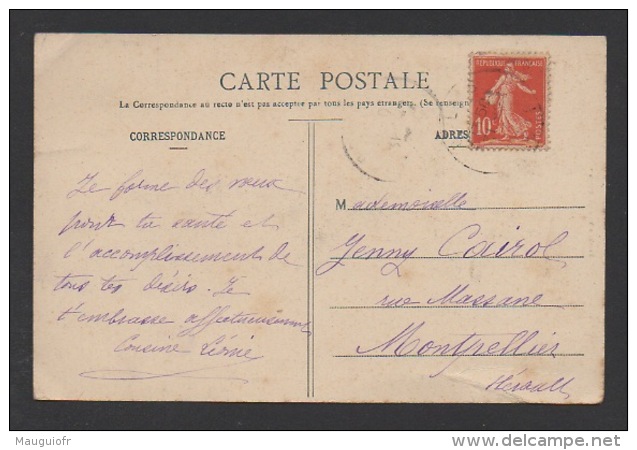 CARTE POSTALE
La Correspondance au recto n'est pas acceptée par tous les pays étrangers. (Se renseign
CORRESPONDANCE
ADRES
REPUBLIQUE FRANÇAISE
10c
POSTES
Je forme des vœux
pour ta santé et
l'accomplissement de
tous tes désirs. Je
t'embrasse affectueusement
Cousine Léonie
Mademoiselle
Jenny Cairol
rue Massane
Montpellier
Hérault
Mauguiofr
www.delcampe.net